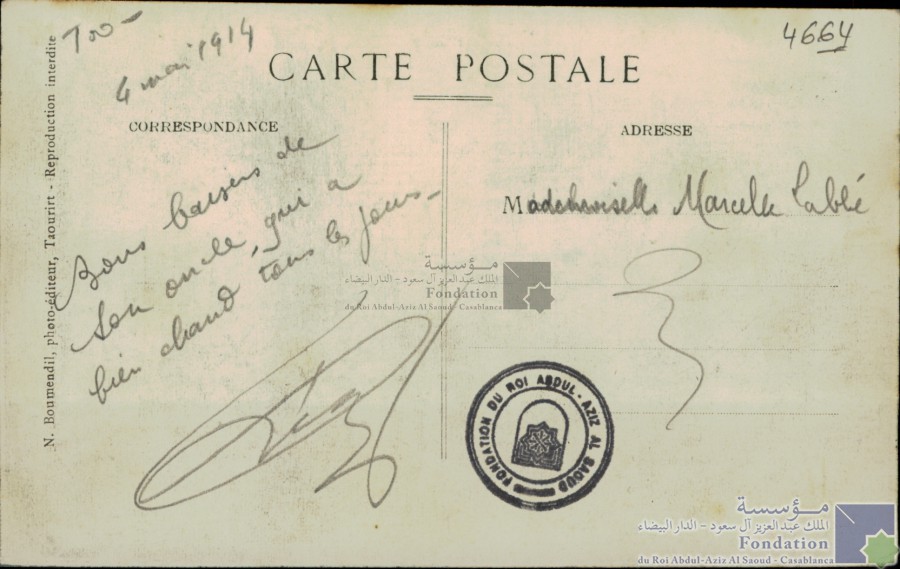 100-
4 mai 1914
4664
CARTE POSTALE
CORRESPONDANCE
ADRESSE
N. Boumendil, photo-éditeur, Taourirt - Reproduction interdite
Bons baisers de
son oncle, qui a
bien chaud tous les jours-
Mademoiselle Marcelle Lablé
مؤسسة
الملك عبدالعزيز آل سعود - الدار البيضاء
Fondation
du Roi Abdul-Aziz Al Saoud - Casablanca
FONDATION DU ROI ABDUL-AZIZ AL SAOUD
مؤسسة
الملك عبدالعزيز آل سعود - الدار البيضاء
Fondation
du Roi Abdul-Aziz Al Saoud - Casablanca